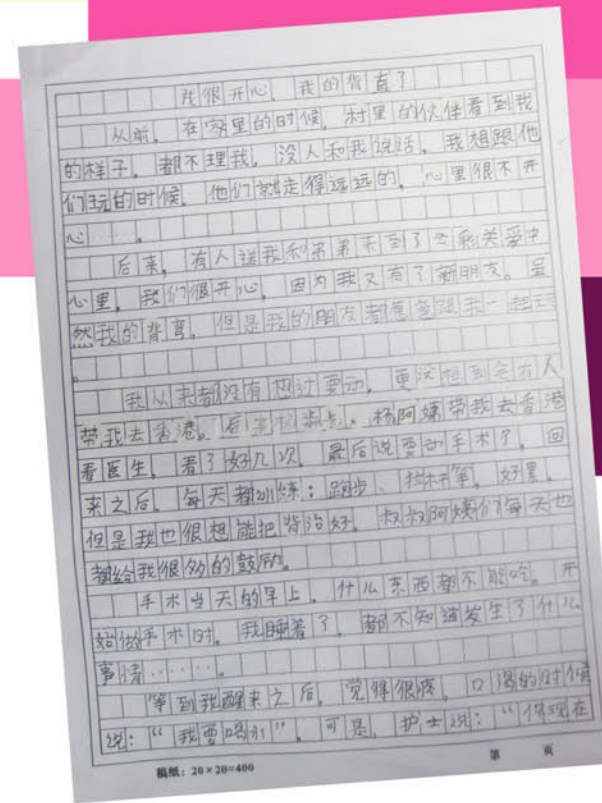 我很开心，我的背直了
从前，在家里的时候，村里的伙伴看到我
的样子，都不理我，没人和我说话，我想跟他
们玩的时候，他们就走得远远的，心里很不开
心……。
后来，有人送我和弟弟来到了关爱中
心里，我们很开心，因为我又有了新朋友。虽
然我的背弯，但是我的朋友都愿意跟我一起玩
。
我从来都没有想过要动，更没想到会有人
带我去香港。杨阿姨带我去香港
看医生，看了好几次，最后说要动手术了，回
来之后，每天都训练：跑步、等，好累，
但是我也很想能把背治好。叔叔阿姨们每天也
都给我很多的鼓励。
手术当天的早上，什么东西都不能吃。开
始做手术时，我睡着了，都不知道发生了什么
事情……。
等到我醒来之后，觉得很疼，口渴的时候
说：“我要喝水”，可是，护士说：“你现在
稿纸：20×20=400
第 页